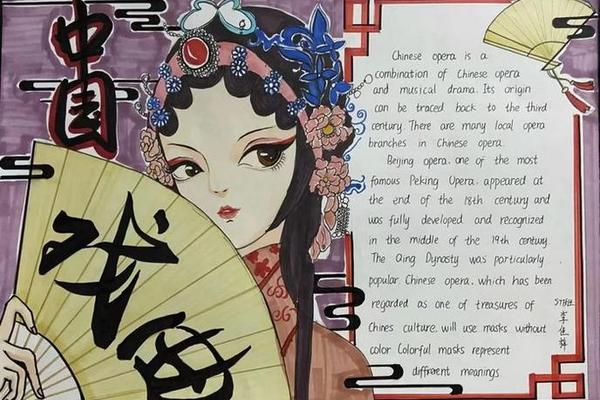 中国
戏曲
Chinese opera is a
combination of Chinese opera
and musical drama. Its origin
can be traced back to the third
century. There are many local opera
branches in Chinese opera.
Beijing opera. one of the most
famous Peking Opera. appeared at
the end of the 18th century and
was fully developed and recognized
in the middle of the 19th century.
The Qing Dynasty was particularly
popular Chinese opera. which has been
regarded as one of treasures of
Chines culture. will use masks without
color Colorful masks represent
different meanings